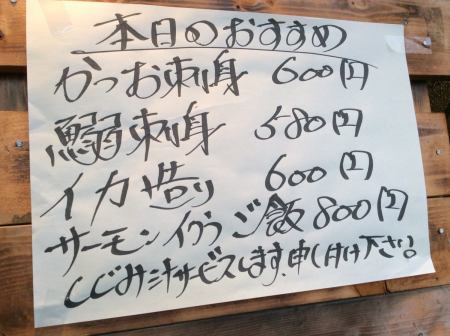 本日のおすすめ
かつお刺身 600円
鰯刺身 580円
イカ造り 600円
サーモンイクラご飯 800円
しじみ汁サービスします、申し付け下さい!